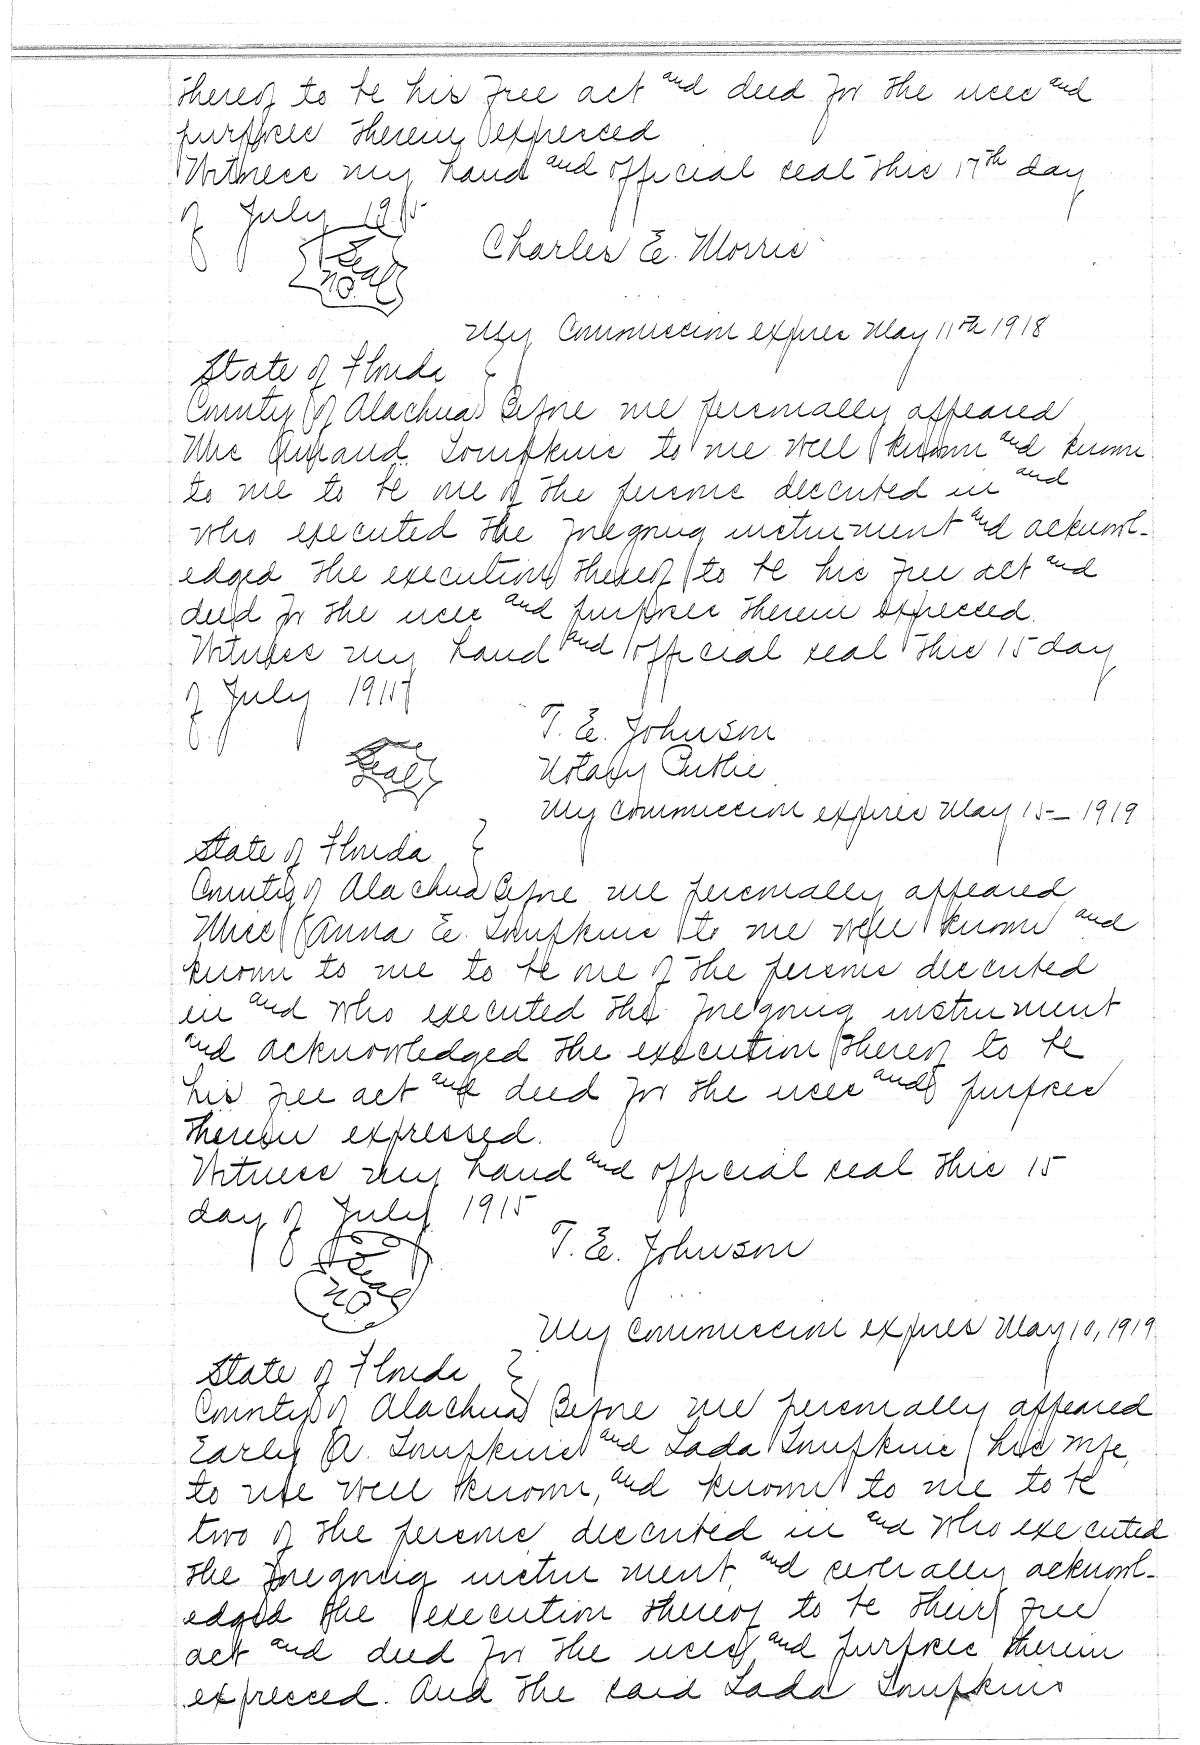 thereof to be his free act and deed for the uses and
purposes therein expressed
Witness my hand and official seal this 17th day
of July 1915
Charles E. Morris
Seal
NO.
My Commission expires May 11th 1918
State of Florida }
County of Alachua Before me personally appeared
Tompkins to me well known and known
to me to be one of the persons deccuted in and
who executed the foregoing instrument and acknowl-
edged the execution thereof to be his free act and
deed for the uses and purposes therein expressed.
Witness my hand and official seal this 15 day
of July 1915
T. E. Johnson
Seal
Notary Public
My commission expires May 15- 1919
State of Florida }
County of Alachua Before me personally appeared
Miss Anna E. Tompkins to me well known and
known to me to be one of the persons deccuted
in and who executed the foregoing instrument
and acknowledged the execution thereof to be
his free act and deed for the uses and purposes
therein expressed.
Witness my hand and official seal this 15
day of July 1915
T. E. Johnson
Seal
NO
My commission expires May 10, 1919
State of Florida }
County of Alachua Before me personally appeared
Early A. Tompkins and Lada Tompkins his wife,
to me well known, and known to me to be
two of the persons deccuted in and who executed
the foregoing instrument, and severally acknowl-
edged the execution thereof to be their free
act and deed for the uses and purposes therein
expressed. And the said Lada Tompkins